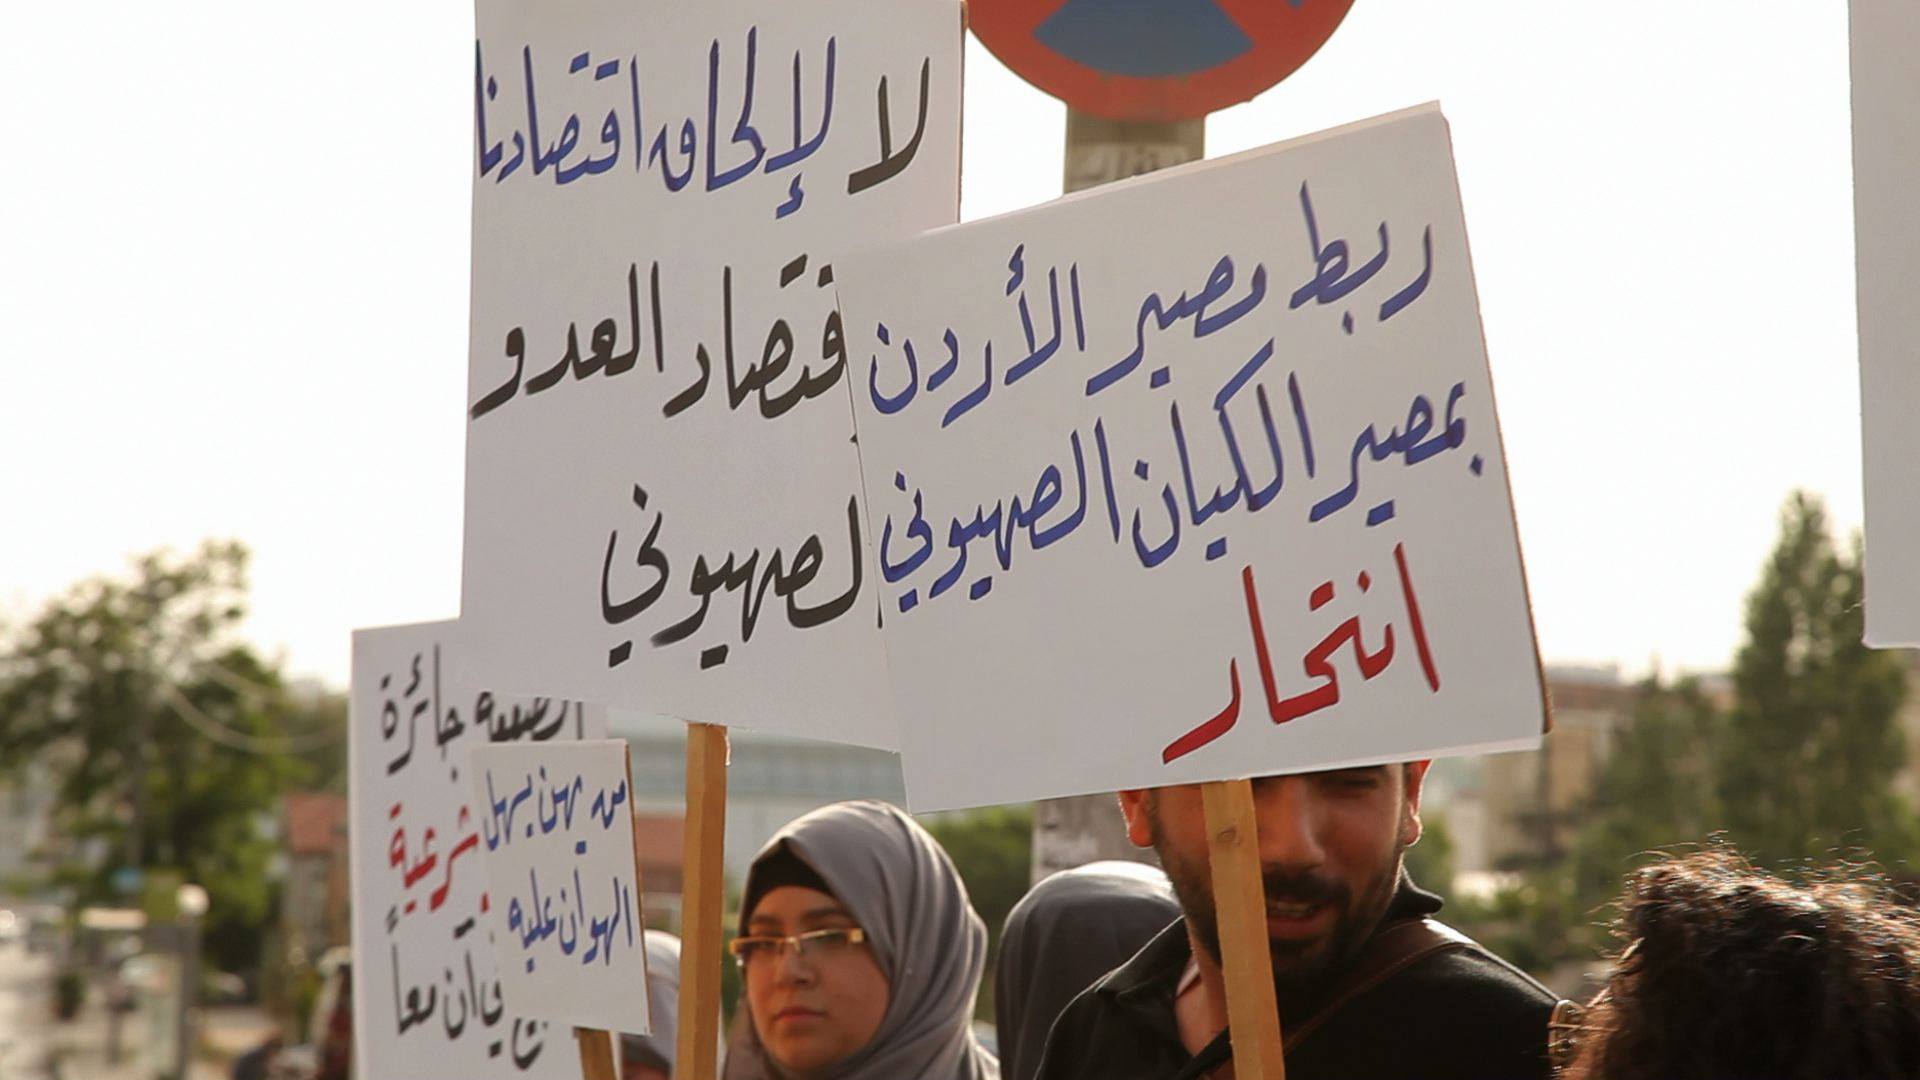 لا لإلحاق اقتصادنا
قتصاد العدو
لصهيوني
ربط مصير الأردن
بمصير الكيان الصهيوني
انتحار
جائزة
شرعية
في آن معاً
من يهن يسهل
الهوان عليه